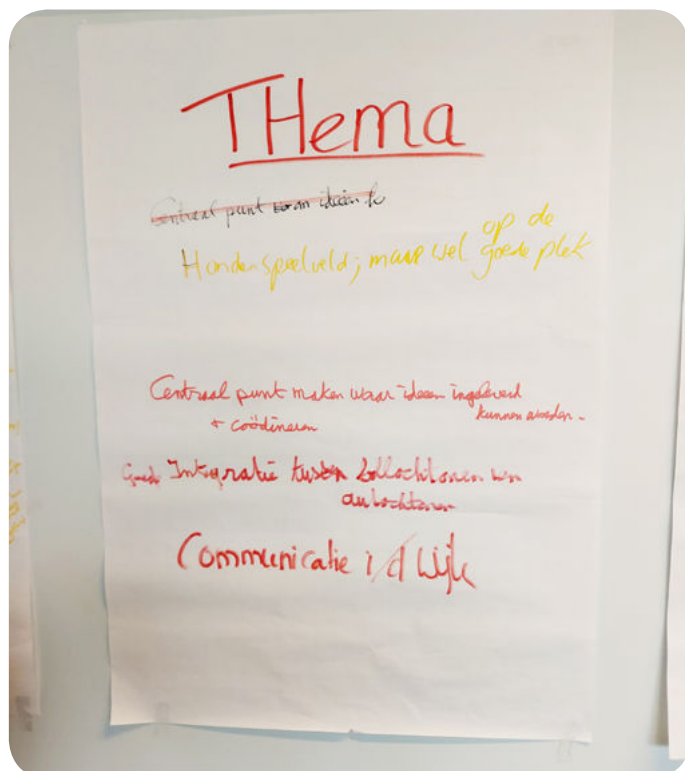 THema
Centraal punt waar ideeën
op de
Hondenspeelveld; maar wel goede plek
Centraal punt maken waar ideeen ingeleverd
kunnen worden -
+ coödineren
Goede Integratie tussen allochtonen en
autochtonen
Communicatie i/d wijk